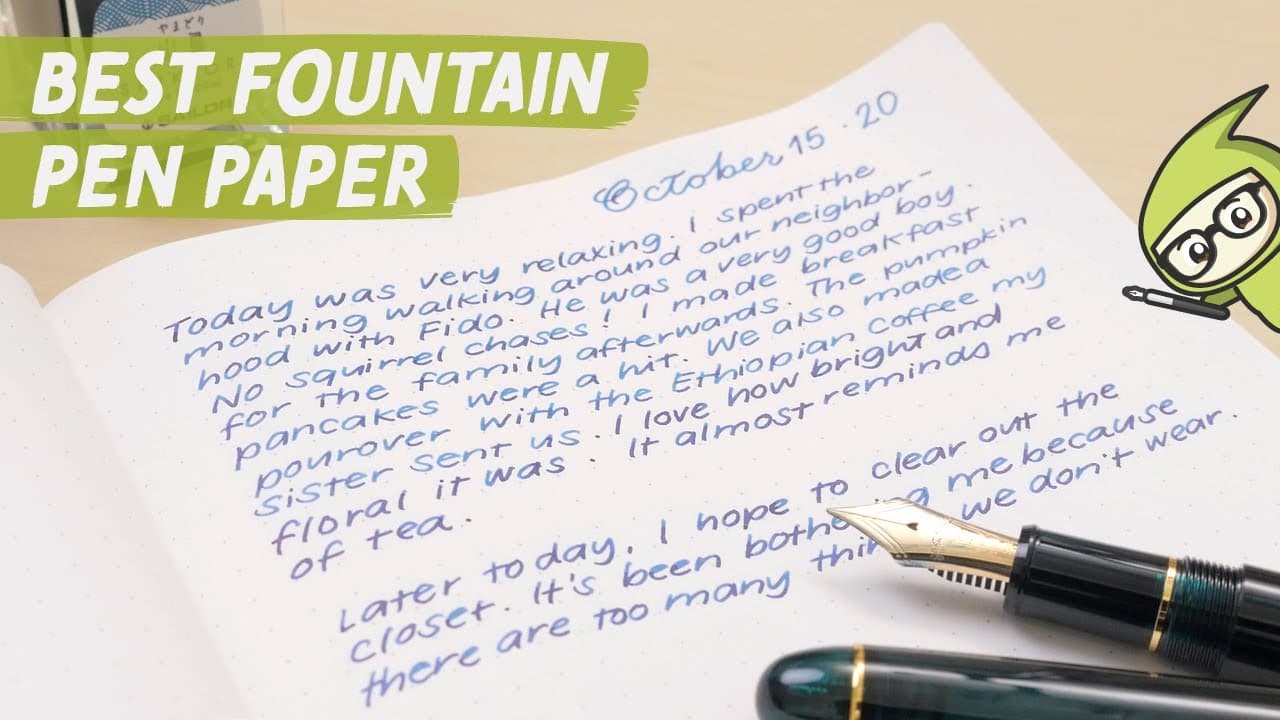 やまどり
BEST FOUNTAIN
PEN PAPER
October 15 . 20
Today was very relaxing. I spent the
morning walking around our neighbor-
hood with Fido. He was a very good boy.
No squirrel chases! I made breakfast
for the family afterwards. The pumpkin
pancakes were a hit. We also made a
pourover with the Ethiopian coffee my
sister sent us. I love how bright and
floral it was. It almost reminds me
of tea.
Later today, I hope to clear out the
closet. It's been me because
there are too many we don't wear.